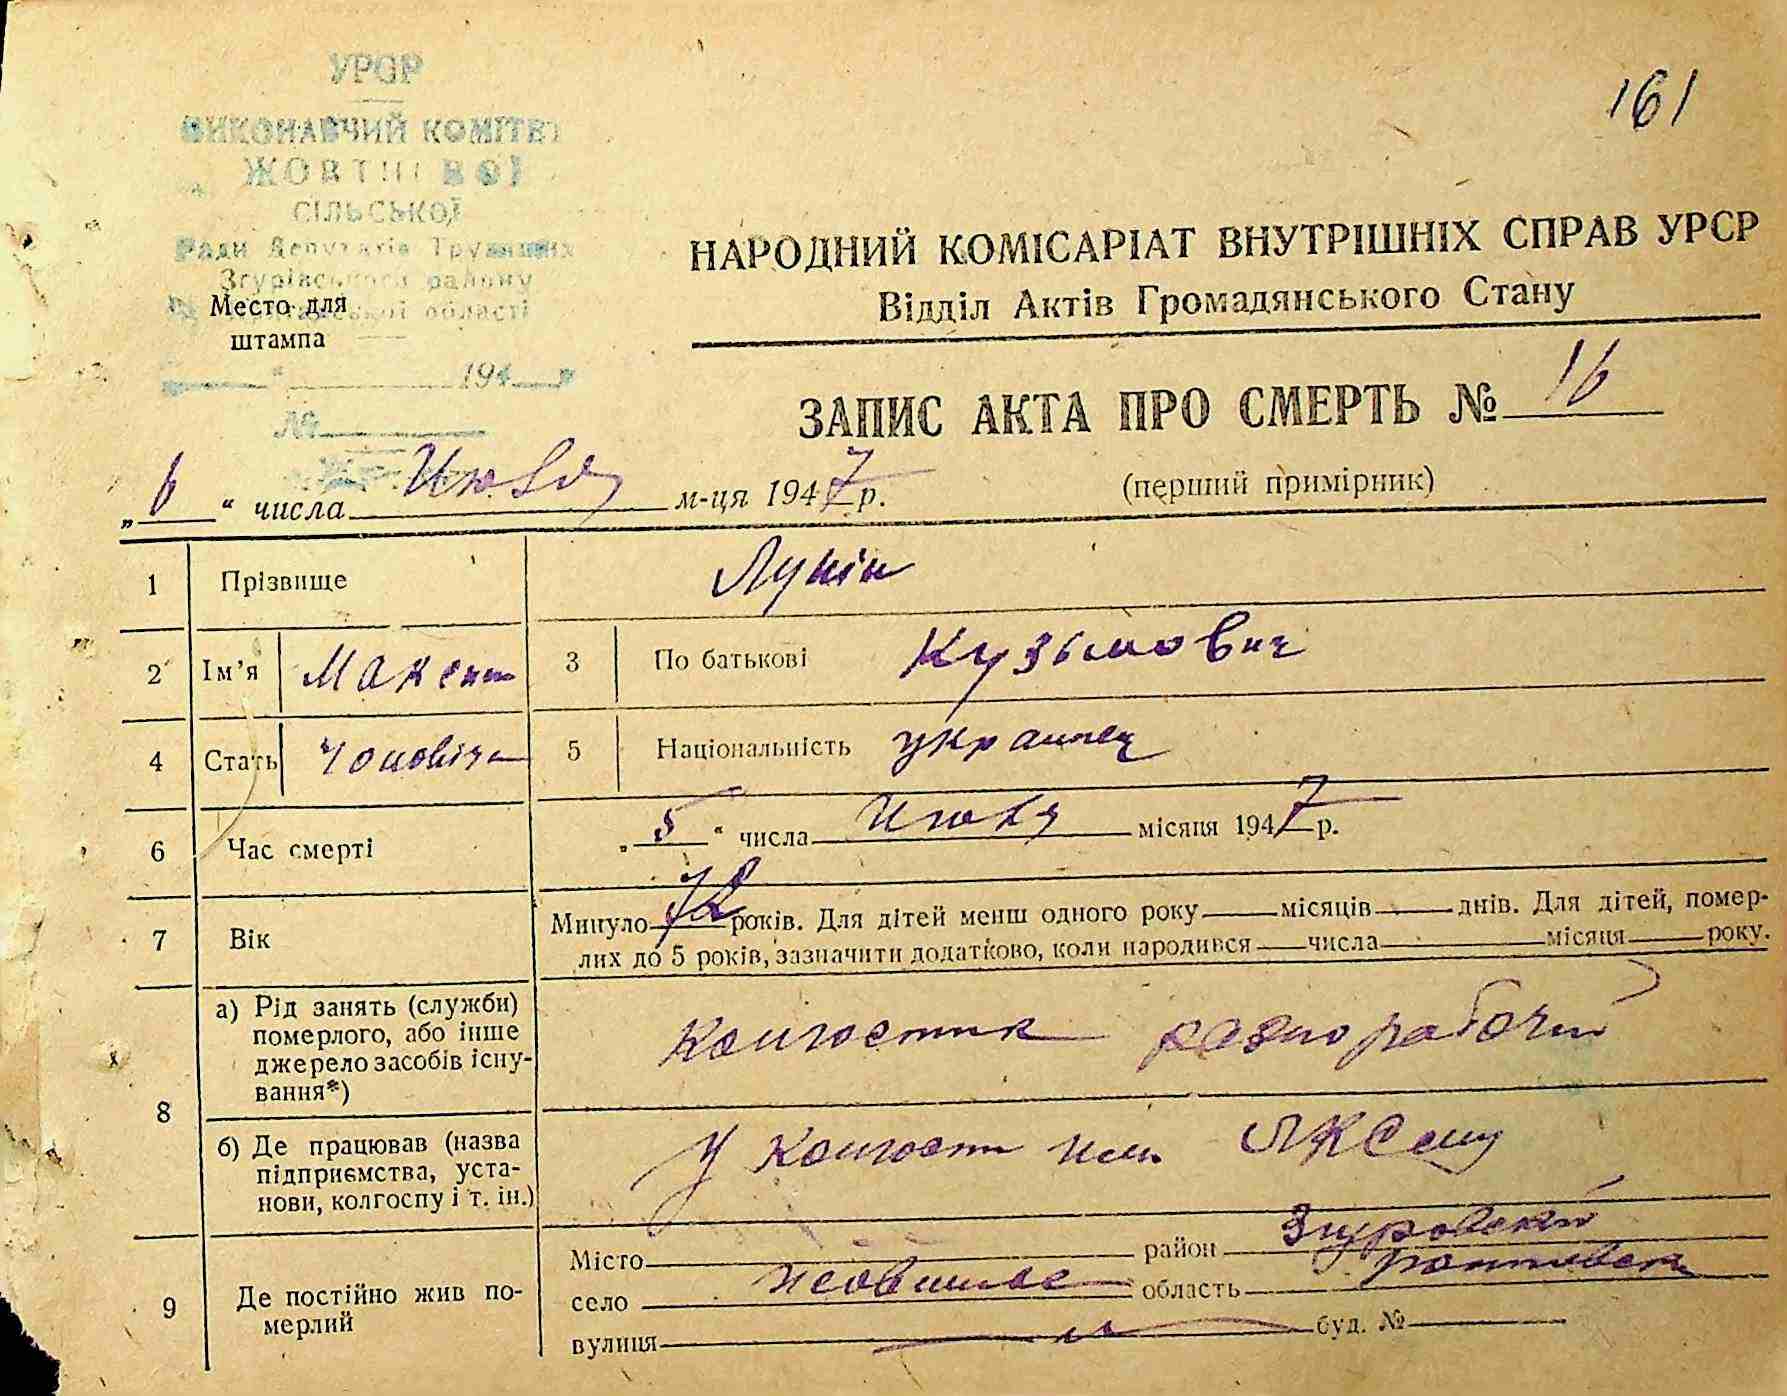 161
УРСР
ВИКОНАВЧИЙ КОМІТЕТ
ЖОВТНЕВОЇ
СІЛЬСЬКОЇ
Ради Депутатів Трудящих
Згурівського району
області
Место для
штампа
194
№
НАРОДНИЙ КОМІСАРІАТ ВНУТРІШНІХ СПРАВ УРСР
Відділ Актів Громадянського Стану
ЗАПИС АКТА ПРО СМЕРТЬ № 16
„6“ числа Июля м-ця 1947 р.
(перший примірник)
1 Прізвище Лунін
2 Ім'я Максим 3 По батькові Кузьмович
4 Стать 5 Національність украинец
6 Час смерті „5“ числа Июля місяця 1947 р.
7 Вік Минуло 72 років. Для дітей менш одного року місяців днів. Для дітей, помер-
лих до 5 років, зазначити додатково, коли народився числа місяця року.
8 а) Рід занять (служби)
померлого, або інше
джерело засобів існу-
вання*)
разнорабочий
б) Де працював (назва
підприємства, уста-
нови, колгоспу і т. ін.)
у
9 Де постійно жив по-
мерлий
Місто район Згуровский
село область
вулиця буд. №